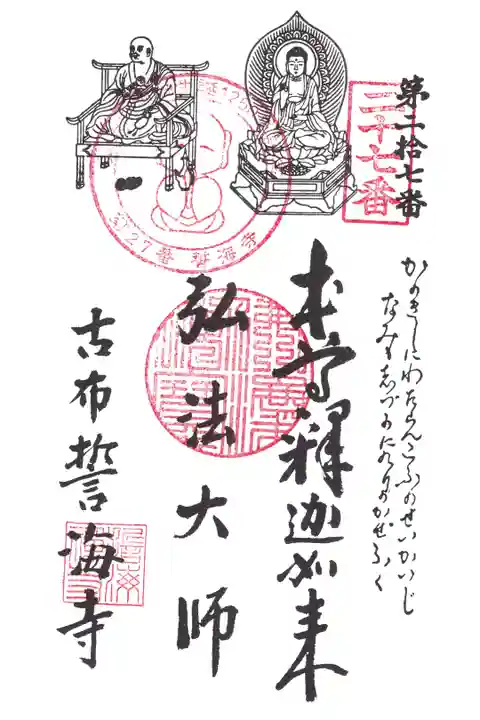 第二拾七番
二十七番
かのきしにわたらんこふのせいかいじ
なみもしづかにのりのかぜふく
本尊釋迦如来
弘法大師
第27番 誓海寺
古布誓海寺